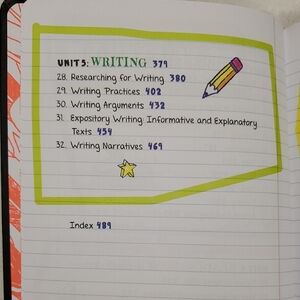 UNIT 5: WRITING 379
28. Researching for Writing 380
29. Writing Practices 402
30. Writing Arguments 432
31. Expository Writing: Informative and Explanatory
Texts 454
32. Writing Narratives 469
Index 489